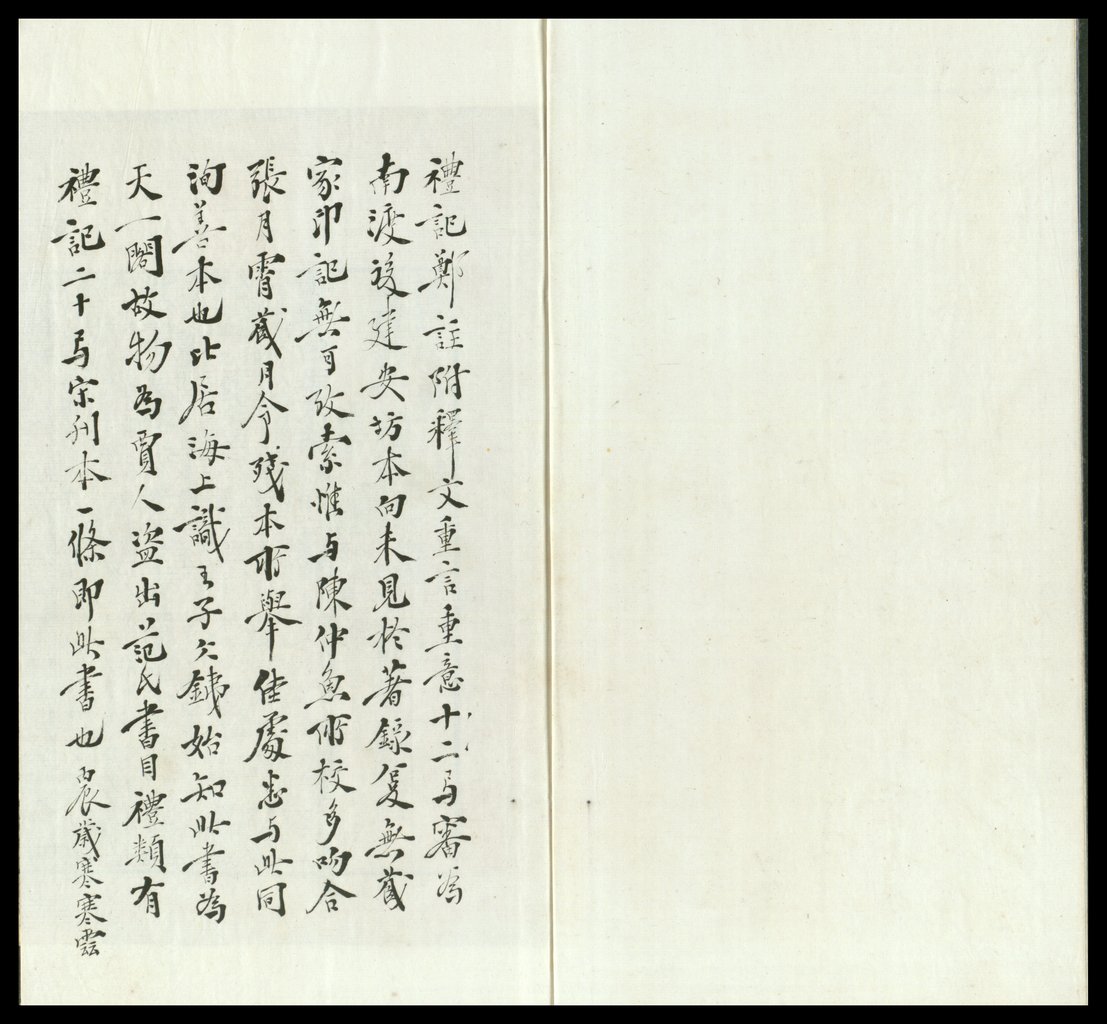 禮記鄭註附釋文重言重意十二弓審為
南渡後建安坊本向未見於著錄叟無藏
家印記無可攷索惟与陳仲魚所校多吻合
張月霄藏月令殘本所舉佳處悉与此同
洵善本也比居海上識王子欠銕始知此書為
天一閣故物為賈人盜出范氏書目禮類有
禮記二十弓宋刊本一條即此書也 丙辰歲寒寒雲